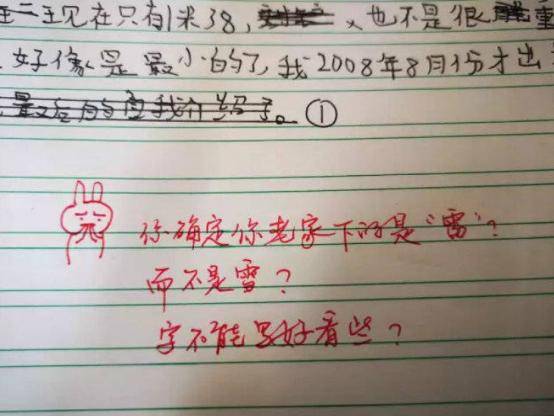 现在只有1米38，也不是很
好像是最小的了，我2008年8月份才出
最后
①
你确定你老家下的是“雷”？
而不是雪？
字不能写好看些？